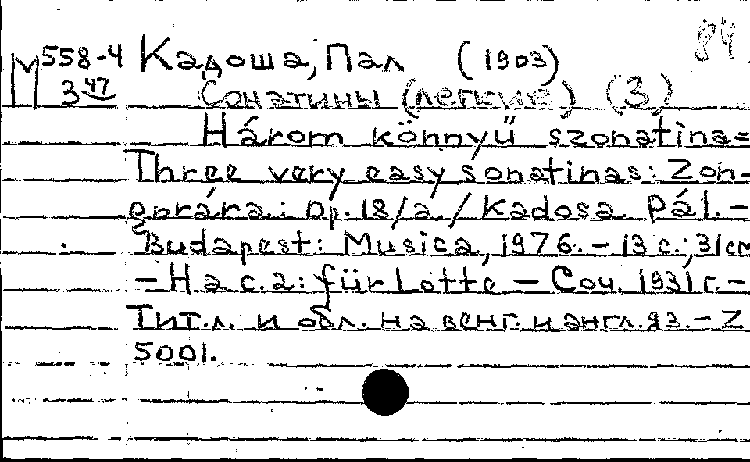 84
М 558-4 Кадоша, Пал (1903)
3 47 Сонатины (легкие) (3)
Három könnyű szonatina=
Three very easy sonatinas: Zon-
gorára: Op.18/a./Kadosa Pál.-
Budapest: Musica, 1976.-13 с.; 31 cm
-На с.2: für Lotte - Соч. 1931 г.-
Тит.л. и обл. на венг. и англ. яз.-Z
5001.